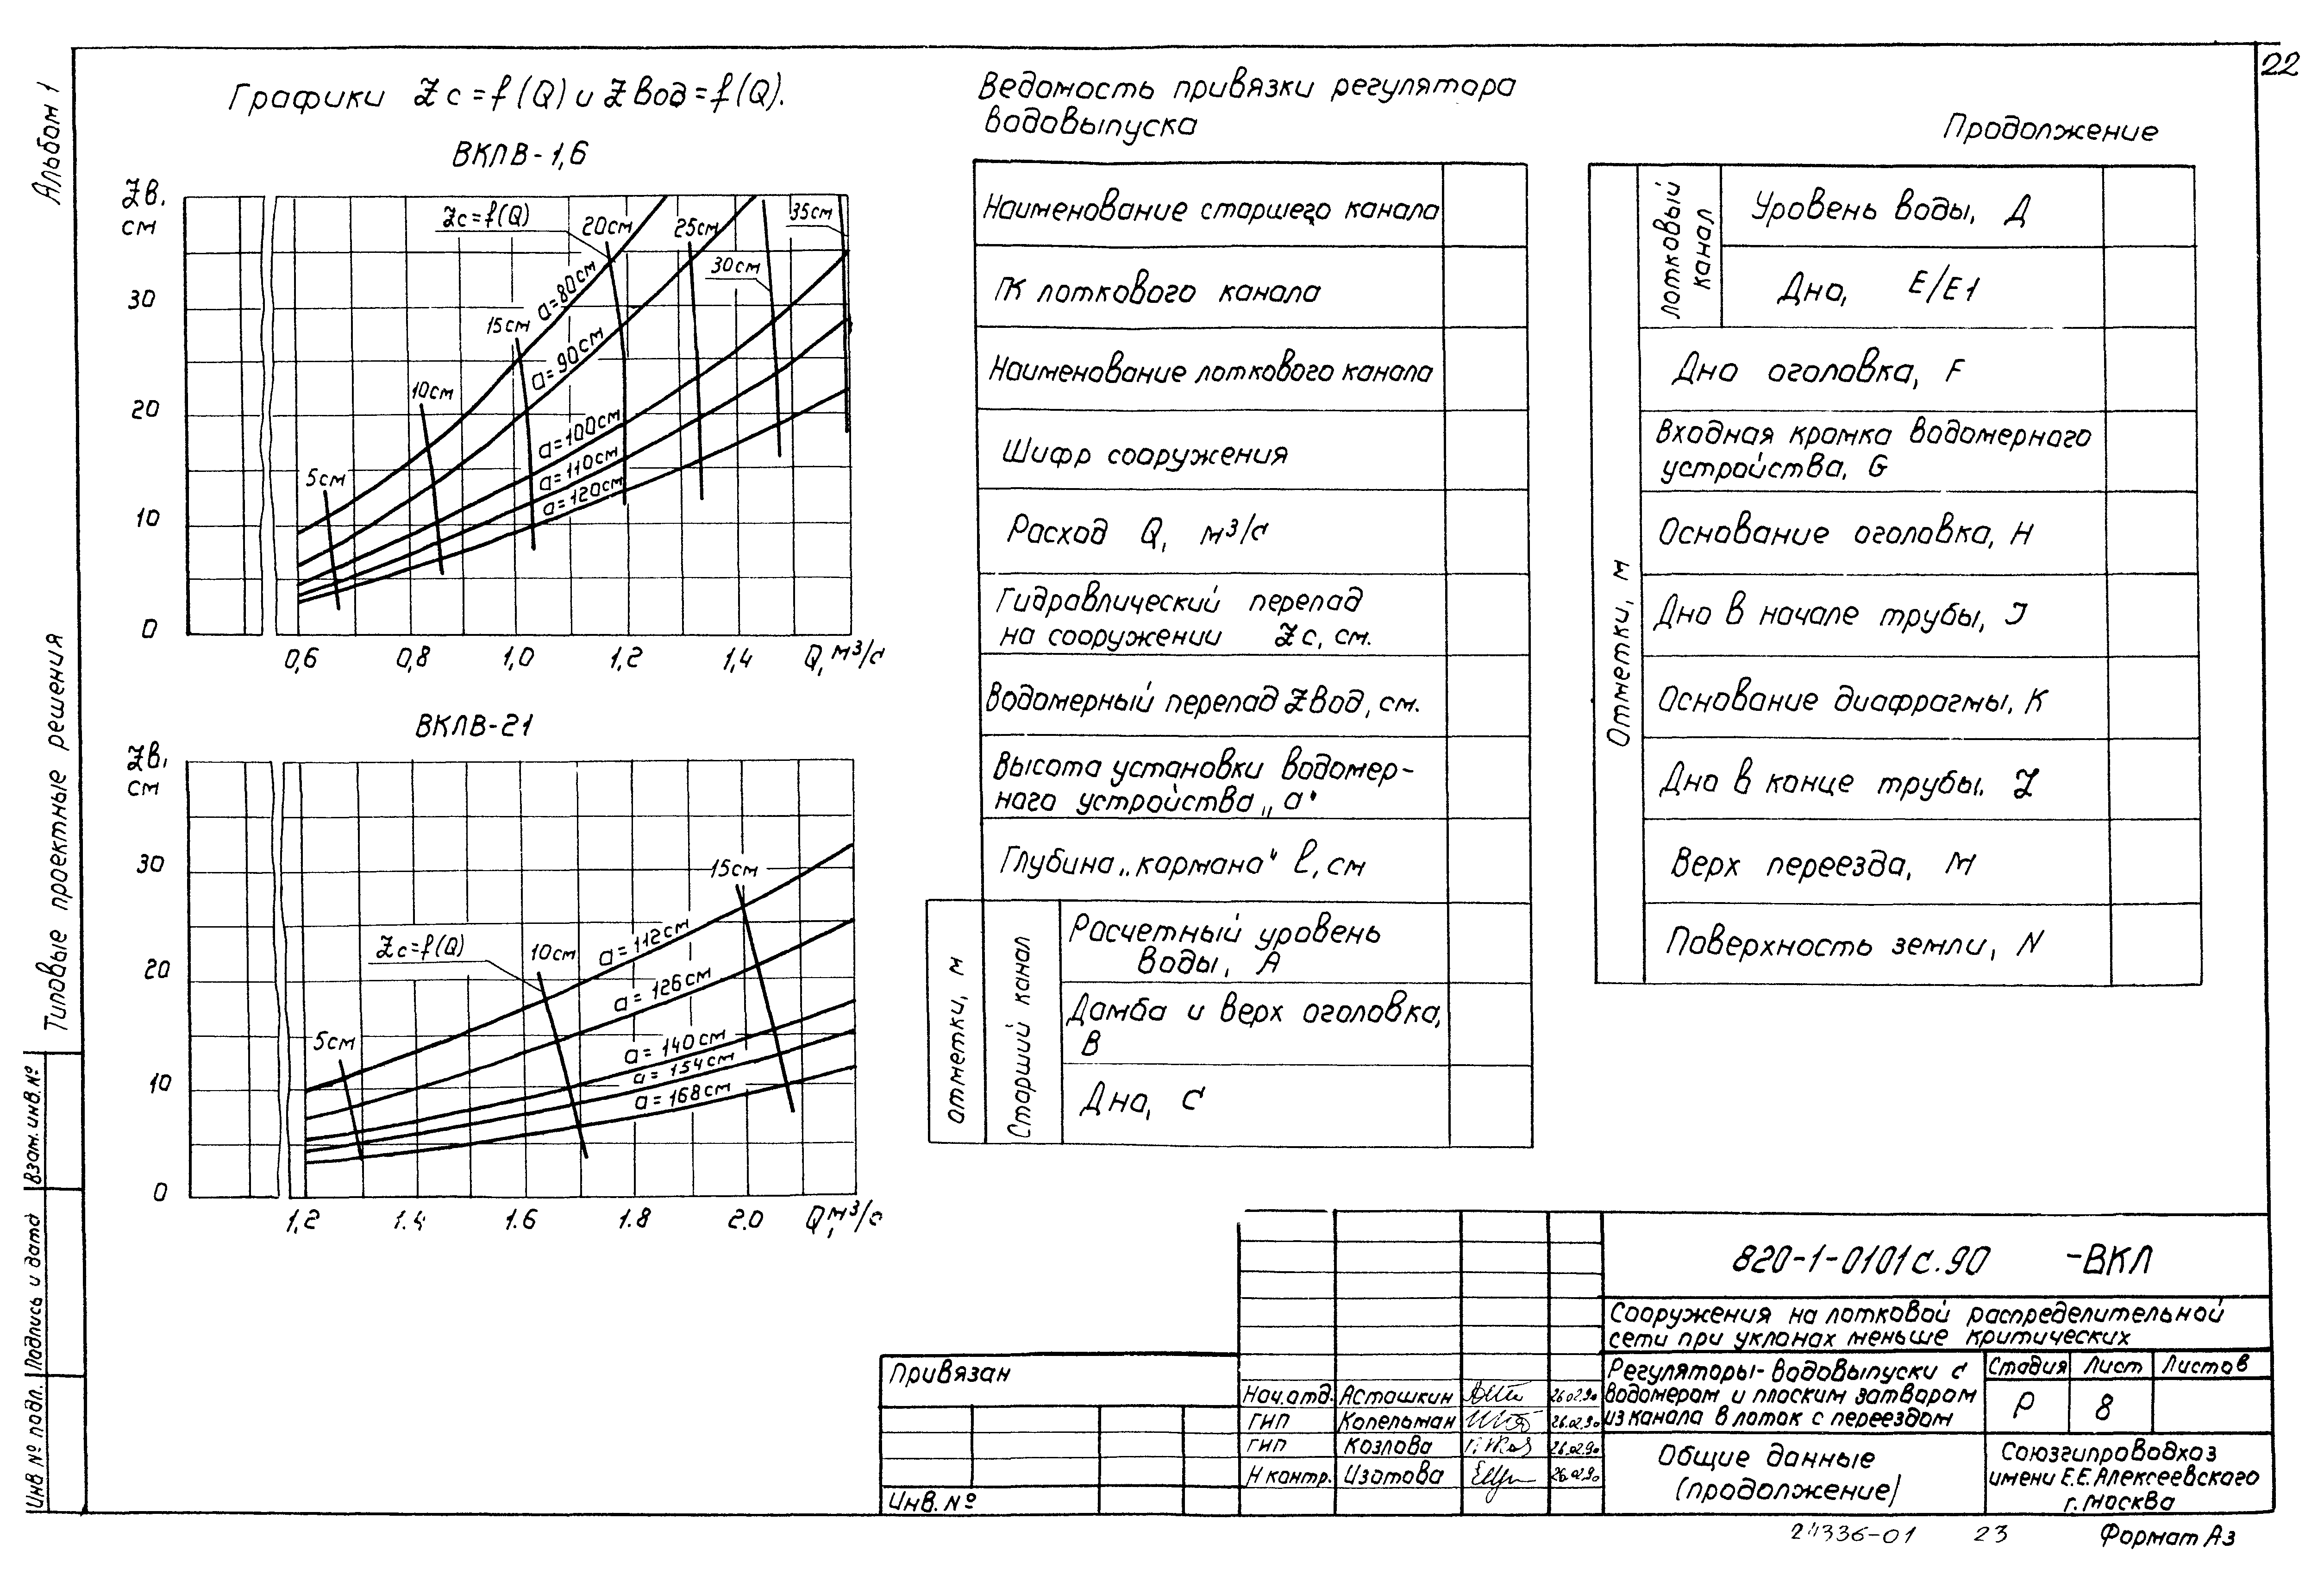 22
Альбом 1
Типовые проектные решения
Взам. инв. №
Подпись и дата
Инв № подл.
Графики Zс=f(Q) и Zвод=f(Q).
ВКЛВ-1,6
Zв.
см
30
20
10
0
0,6 0,8 1,0 1,2 1,4 Q, м³/с
Zс=f(Q)
5см
10см
15см
20см
25см
30см
35см
a=80см
a=90см
a=100см
a=110см
a=120см
ВКЛВ-21
Zв,
см
30
20
10
0
1,2 1.4 1.6 1.8 2.0 Q, м³/с
Zс=f(Q)
5см
10см
15см
a=112см
a=126см
a=140см
a=154см
a=168см
Ведомость привязки регулятора
водовыпуска
Наименование старшего канала
ПК лоткового канала
Наименование лоткового канала
Шифр сооружения
Расход Q, м³/с
Гидравлический перепад
на сооружении Zс, см.
Водомерный перепад Zвод, см.
Высота установки водомер-
ного устройства „а"
Глубина „кармана" ℓ, см
отметки, м
Старший канал
Расчетный уровень
воды, А
Дамба и верх оголовка,
В
Дно, С
Продолжение
Отметки, м
лотковый
канал
Уровень воды, Д
Дно, Е/Е1
Дно оголовка, F
Входная кромка водомерного
устройства, G
Основание оголовка, Н
Дно в начале трубы, J
Основание диафрагмы, К
Дно в конце трубы.
Верх переезда, М
Поверхность земли, N
820-1-0101с.90 -ВКЛ
Сооружения на лотковой распределительной
сети при уклонах меньше критических
Регуляторы-водовыпуски с
водомером и плоским затвором
из канала в лоток с переездом
Стадия Лист Листов
Р 8
Общие данные
(продолжение)
Союзгипроводхоз
имени Е.Е.Алексеевского
г. Москва
Привязан
Инв. №
Нач.отд. Асташкин 26.02.90
ГИП Копельман 26.02.90
ГИП Козлова 26.02.90
Н контр. Изотова 26.02.90
24336-01 23 Формат А3